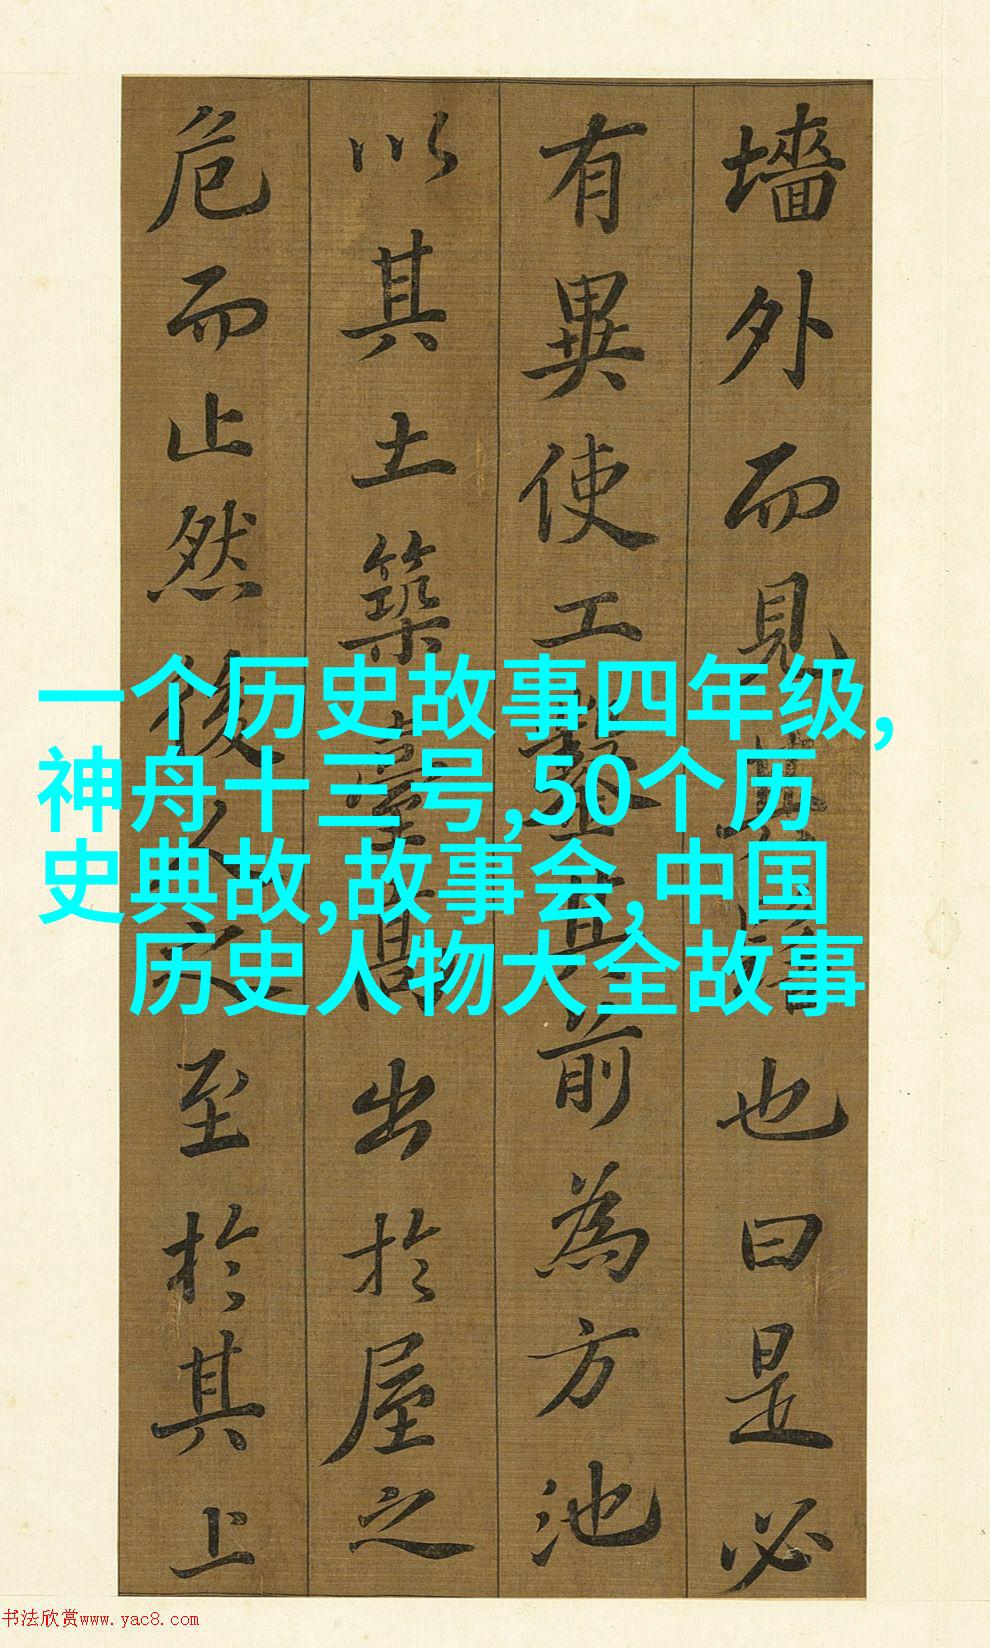 墻外而見其髻也曰是必
有異使工鑿其前為方池
以其土築臺高出於屋之
危而止然後人之至於其上
一个历史故事四年级,
神舟十三号,50个历
史典故,故事会,中国
历史人物大全故事
书法欣赏www.yac8.com